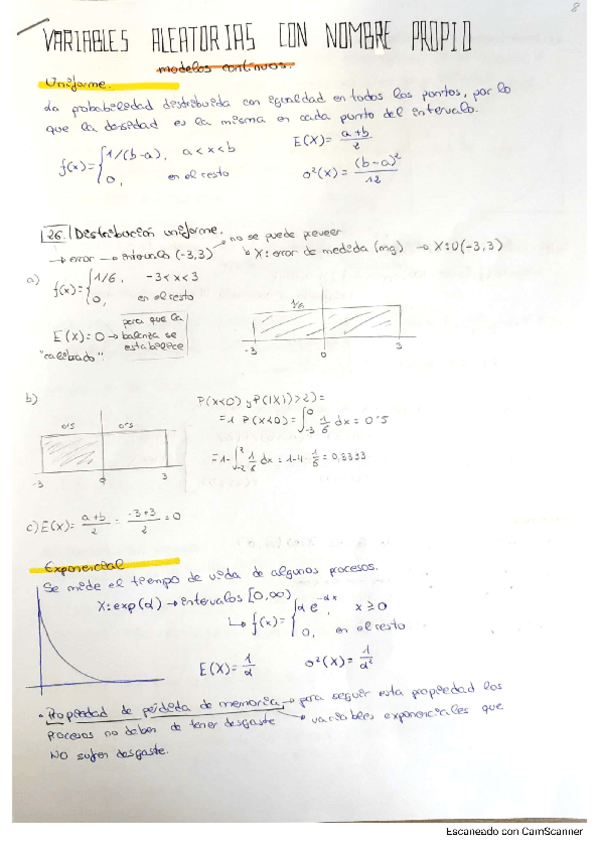 8
VARIABLES ALEATORIAS CON NOMBRE PROPIO
modelos continuos.
Uniforme.
La probabilidad distribuida con igualdad en todos los puntos, por lo
que la densidad es la misma en cada punto del intervalo.
f(x)= { 1/(b-a), a<x<b
0, en el resto
E(X)= a+b/2
σ²(X)= (b-a)²/12
26. Distribución uniforme.
→ error → intervalo (-3,3) → no se puede preveer
↳ X: error de medida (mg) → X:U(-3,3)
a) f(x)= { 1/6, -3<x<3
0, en el resto
E(X)=0 → para que la
balanza se
estabilice
"calibrado".
1/6
-3 0 3
b)
0'5 0'5
-3 0 3
P(X<0) y P(|X|>2)=
=1 P(X<0)= ∫₋₃⁰ 1/6 dx = 0'5
=1-∫₋₂² 1/6 dx = 1-4·1/6 = 0,3333
c) E(X)= a+b/2 = -3+3/2 = 0
Exponencial
Se mide el tiempo de vida de algunos procesos.
X: exp(α) → intervalos [0,∞)
↳ f(x)= { α e^-αx, x≥0
0, en el resto
E(X)= 1/α σ²(X)= 1/α²
• Propiedad de pérdida de memoria → para seguir esta propiedad los
procesos no deben de tener desgaste → variables exponenciales que
NO sufren desgaste.
Escaneado con CamScanner